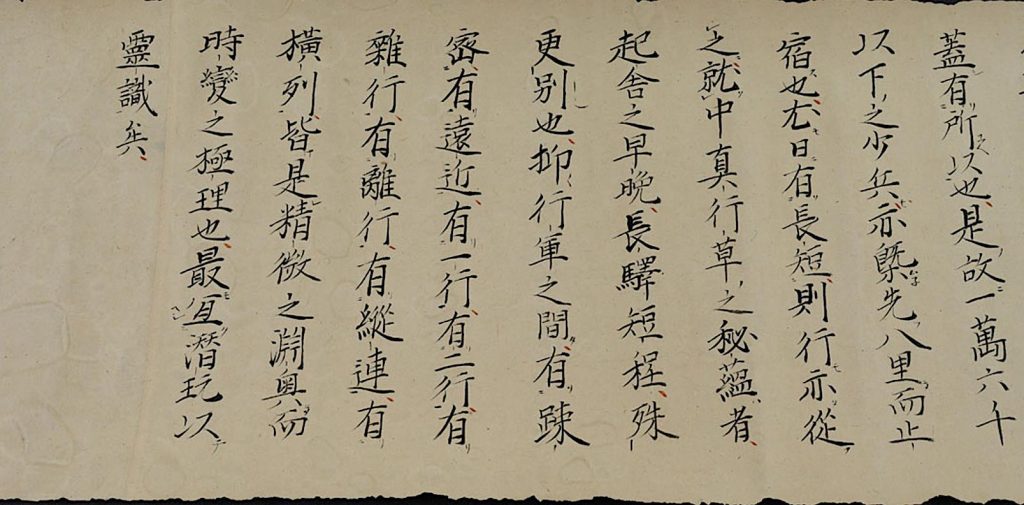 蓋有所以也是故一萬六千
以下之少兵亦槩先八里而止
宿也尤日有長短則行亦從
之就中真行草之秘蘊者
起舍之早晩長驛短程殊
更別也抑行軍之間有踈
密有遠近有一行有二行有
雜行有離行有縱連有
橫列皆是精微之淵奥而
時變之極理也最宜潛玩以
靈識矣